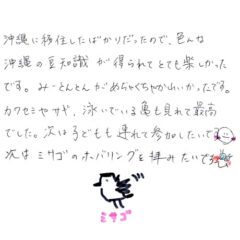 沖縄に移住したばかりだったので、色んな
沖縄の豆知識が得られてとても楽しかった
です。みーとんとんがめちゃくちゃかわいかったです。
カワセミやサギ、泳いでいる亀も見れて最高
でした。次は子どもも連れて参加したいです
次はミサゴのホバリングを拝みたいです
ミサゴ